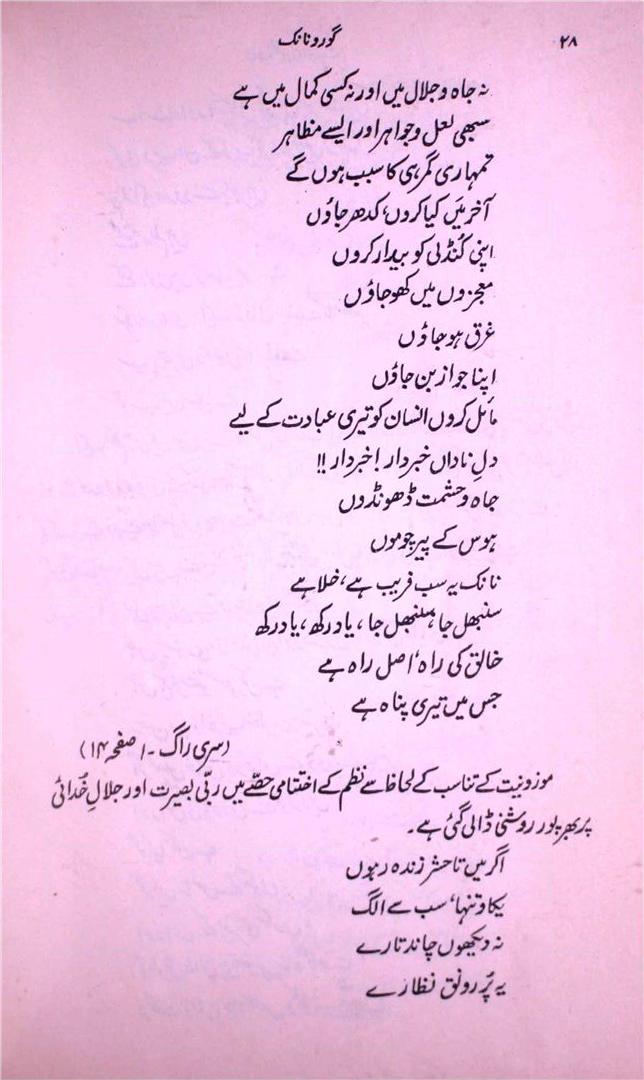 ۲۸
گورو نانک
نہ جاہ و جلال میں اور نہ کسی کمال میں ہے
سبھی لعل و جواہر اور ایسے مظاہر
تمہاری گمرہی کا سبب ہوں گے
آخر میں کیا کروں، کدھر جاؤں
اپنی کُنڈلی کو بیدار کروں
معجزوں میں کھو جاؤں
غرق ہو جاؤں
اپنا جواز بن جاؤں
مائل کروں انسان کو تیری عبادت کے لیے
دلِ ناداں خبردار! خبردار!!
جاہ و حشمت ڈھونڈوں
ہوس کے پیر چوموں
نانک یہ سب فریب ہے، خلا ہے
سنبھل جا، سنبھل جا، یاد رکھ، یاد رکھ
خالق کی راہ، اصل راہ ہے
جس میں تیری پناہ ہے
(سری راگ ۔ ۱ صفحہ ۱۴)
موزونیت کے تناسب کے لحاظ سے نظم کے اختتامی حصّے میں ربّی بصیرت اور جلالِ خُدائی
پر بھرپور روشنی ڈالی گئی ہے۔
اگر میں تا حشر زندہ رہوں
یکا و تنہا، سب سے الگ
نہ دیکھوں چاند تارے
یہ پُر رونق نظارے